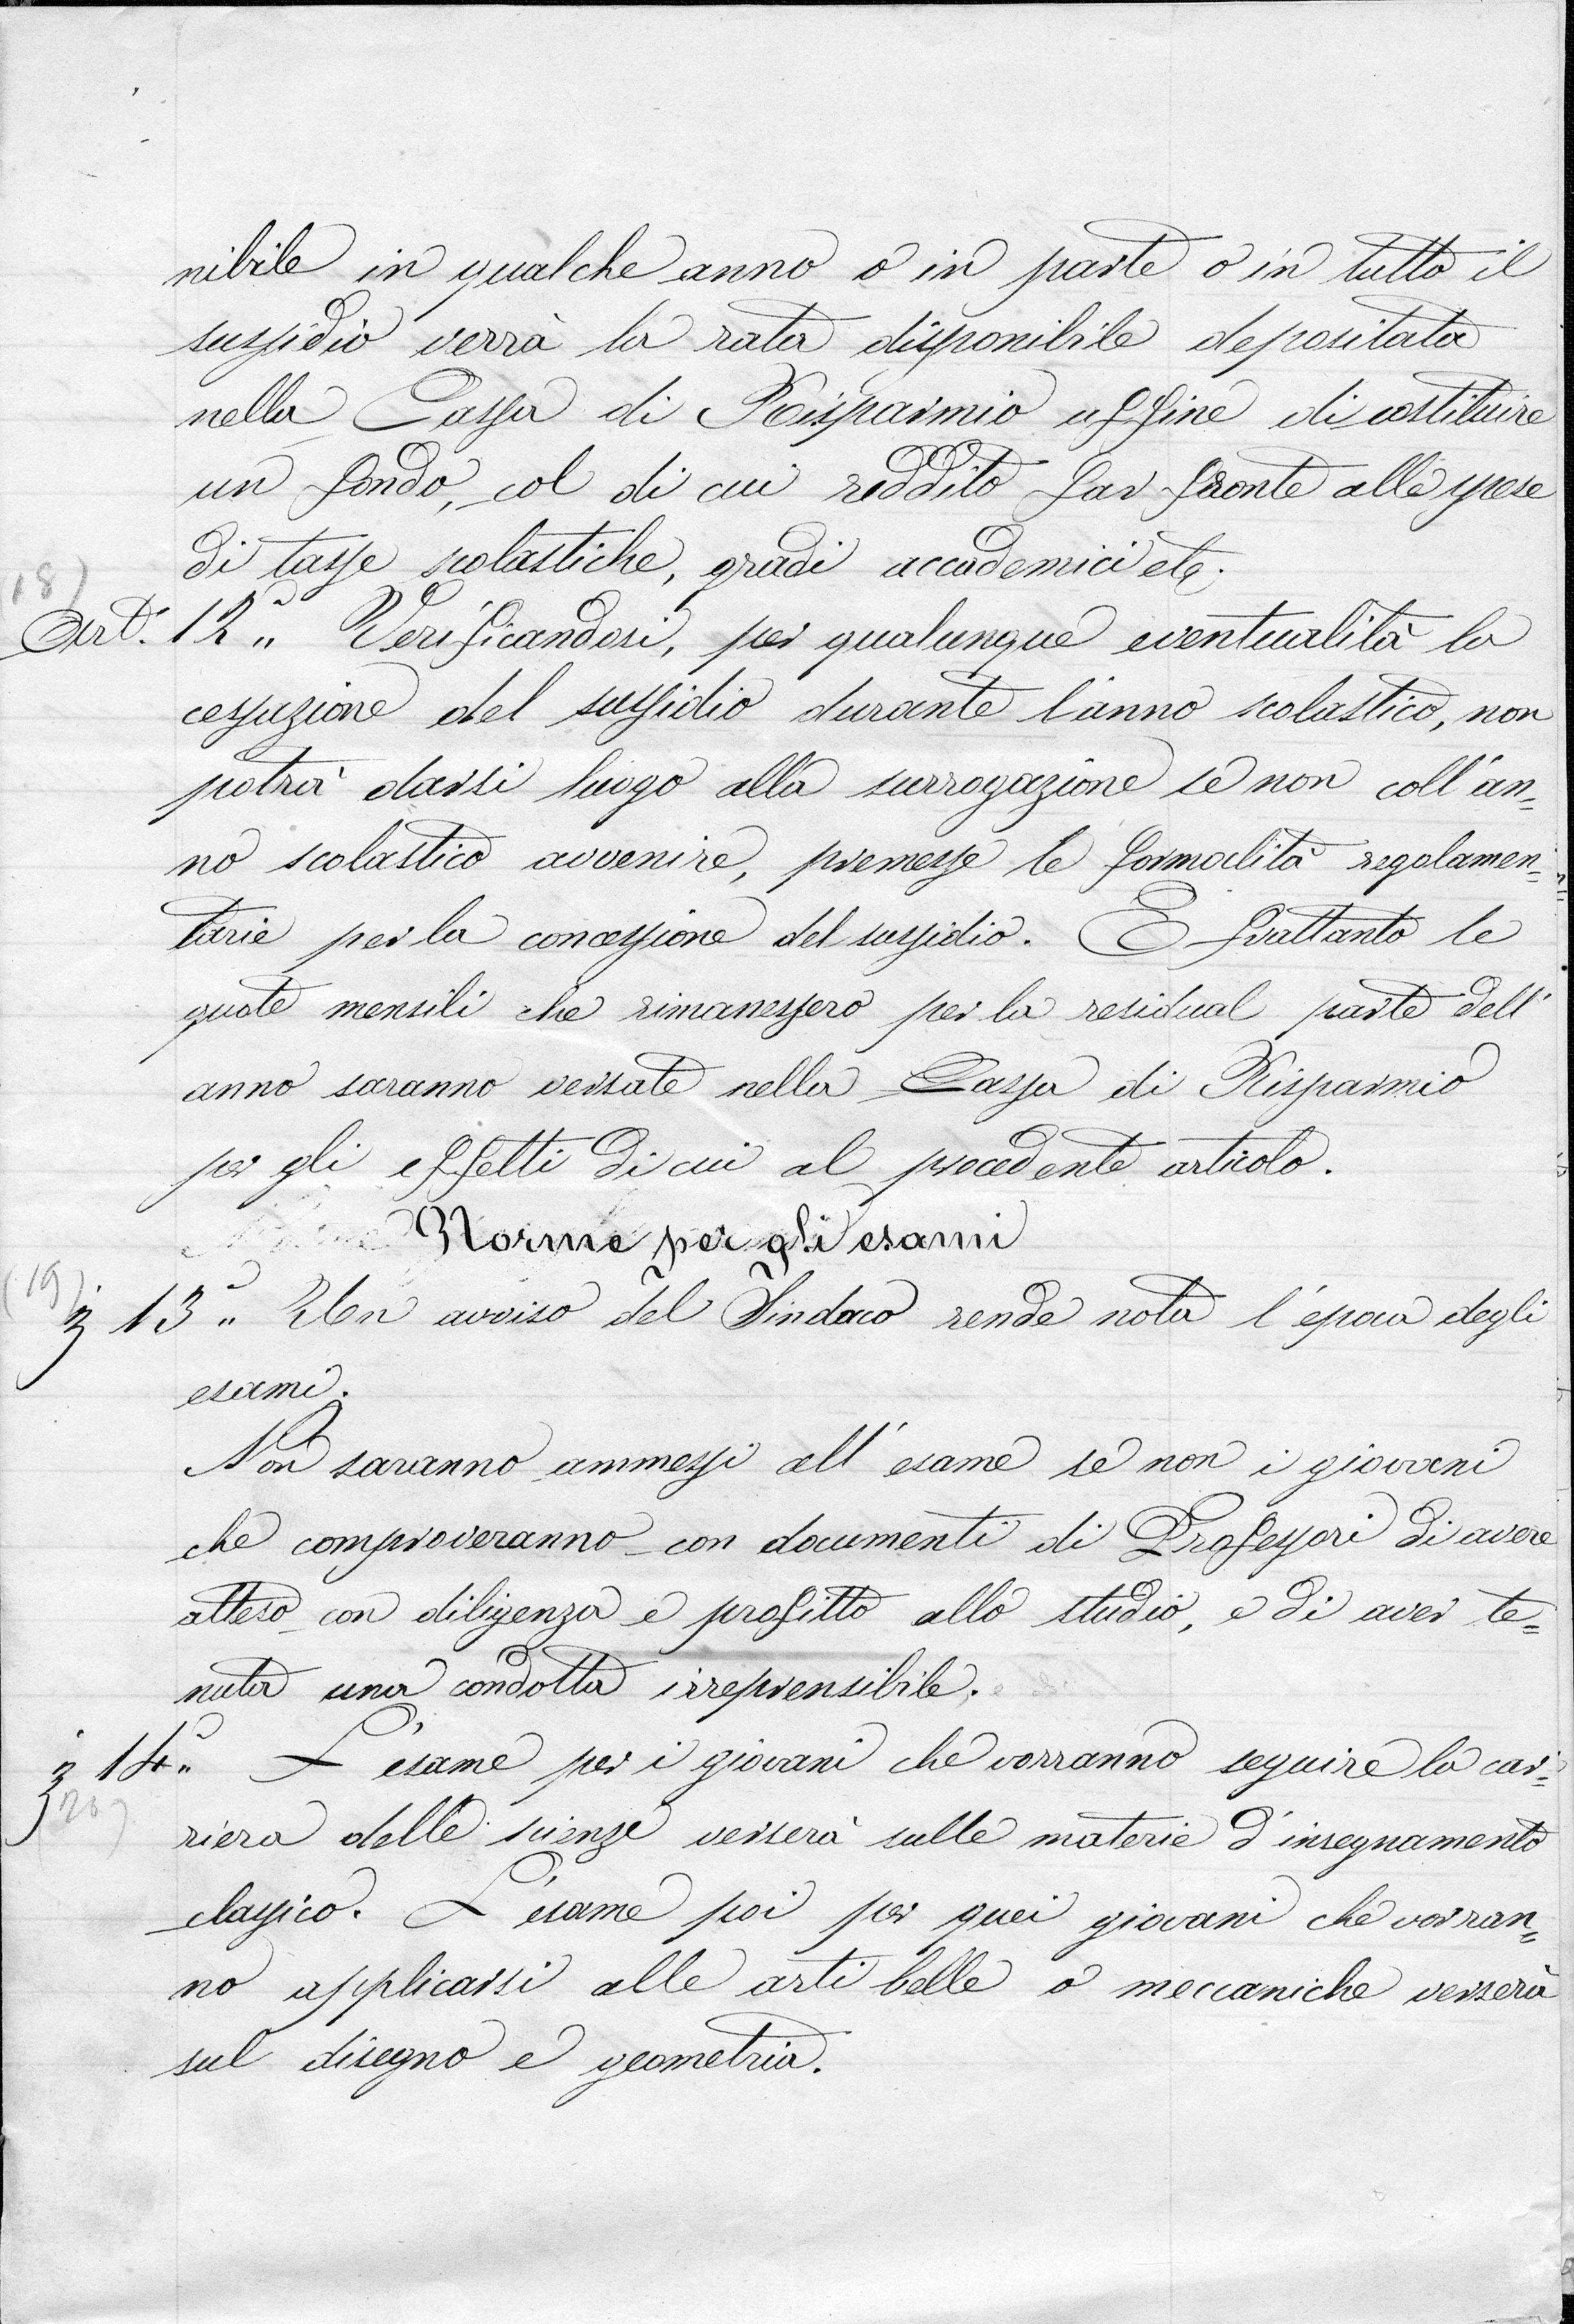 nibile in qualche anno o in parte o in tutto il
sussidio verrà la rata disponibile depositata
nella Cassa di Risparmio affine di costituire
un fondo, col di cui reddito far fronte alle spese
di tasse scolastiche, gradi accademici etc.
(18)
Art. 12.° Verificandosi, per qualunque eventualità la
cessazione del sussidio durante l'anno scolastico, non
potrà darsi luogo alla surrogazione se non coll'an=
no scolastico avvenire, premesse le formalità regolamen=
tarie per la concessione del sussidio. E frattanto le
quote mensili che rimanessero per la residual parte dell'
anno saranno versate nella Cassa di Risparmio
per gli effetti di cui al precedente articolo.
Norme per gli esami
(19)
13.° Un avviso del Sindaco rende nota l'epoca degli
esami.
Non saranno ammessi all'esame se non i giovani
che comproveranno con documenti di Professori di avere
atteso con diligenza e profitto allo studio, e di aver te=
nuta una condotta irreprensibile.
14.° L'esame per i giovani che vorranno seguire la car=
(20)
riera delle scienze verserà sulle materie d'insegnamento
classico. L'esame poi per quei giovani che vorran=
no applicarsi alle arti belle o meccaniche verserà
sul disegno e geometria.